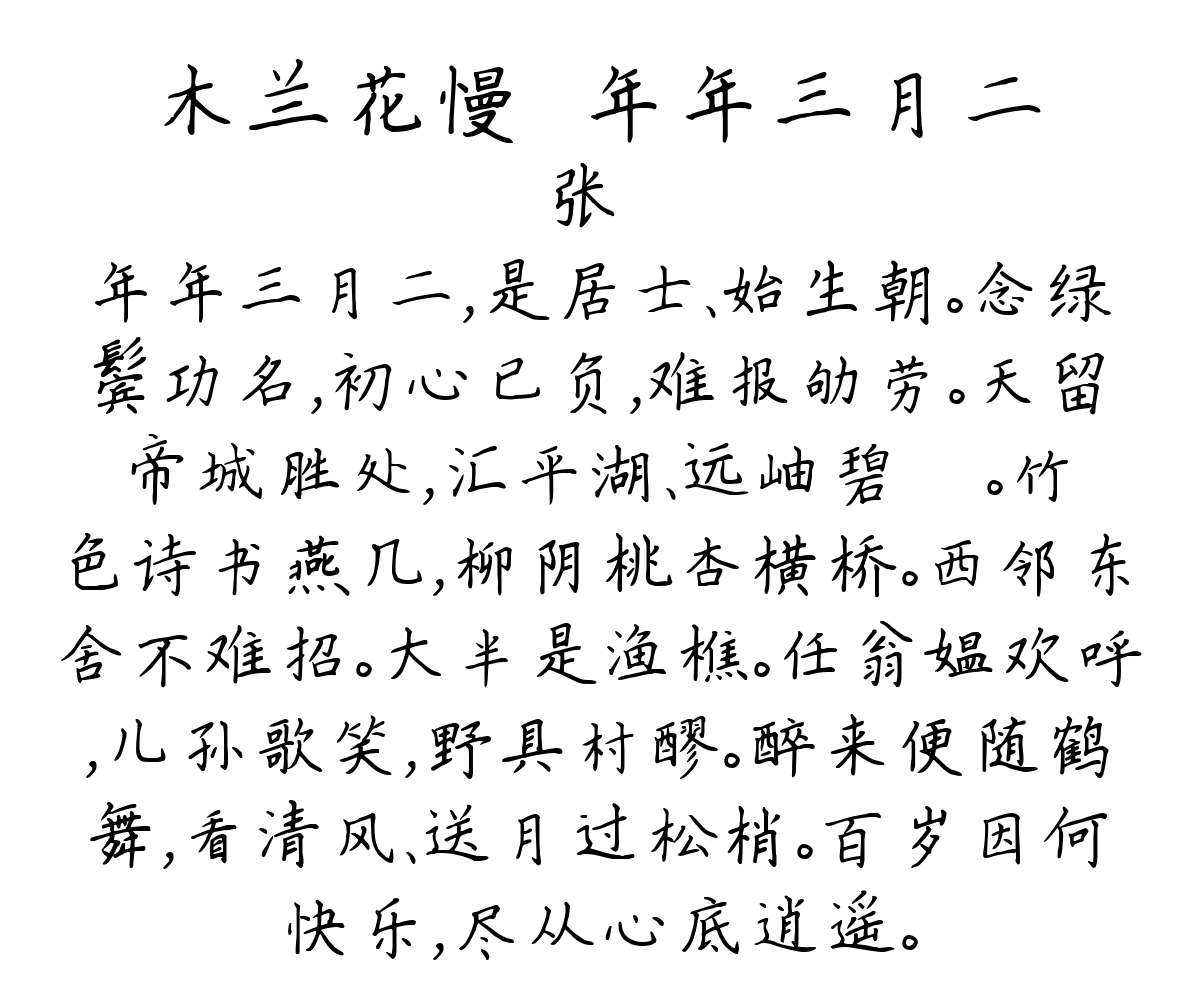 木兰花慢 年年三月二
张
年年三月二,是居士、始生朝。念绿
鬓功名,初心已负,难报劬劳。天留
帝城胜处,汇平湖、远岫碧 。竹
色诗书燕几,柳阴桃杏横桥。西邻东
舍不难招。大半是渔樵。任翁媪欢呼
,儿孙歌笑,野具村醪。醉来便随鹤
舞,看清风、送月过松梢。百岁因何
快乐,尽从心底逍遥。